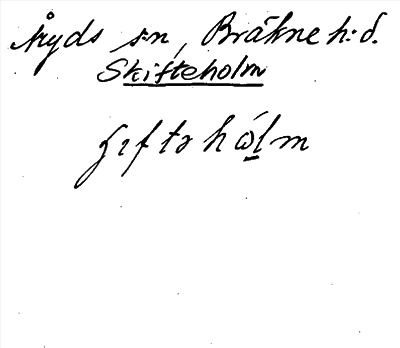 Åryds s:n, Bräkne h:d.
Skifteholm
ʃɪftəhɷ́lm